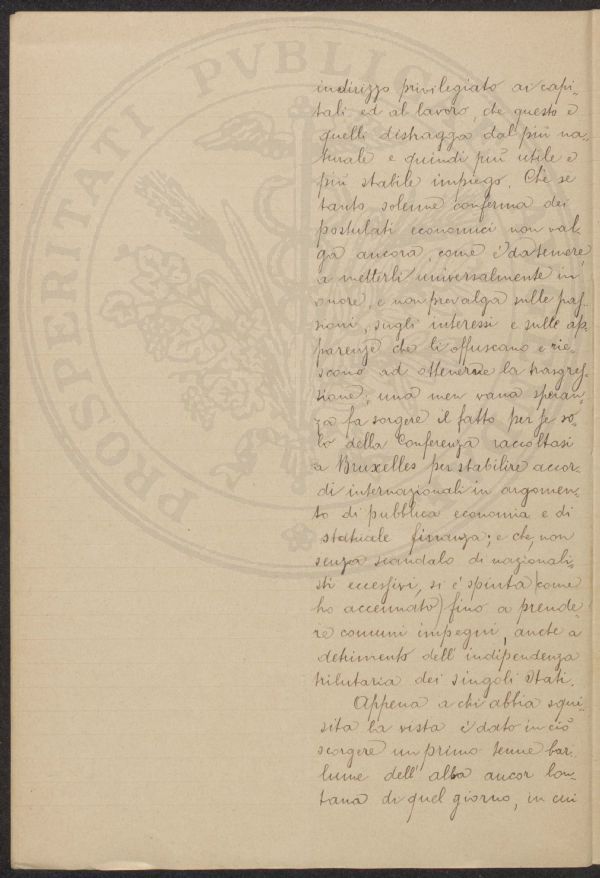 PROSPERITATI PVBLIC
indirizzo privilegiato ai capi-
tali ed al lavoro, che questo e
quelli distragga dal più na-
turale e quindi più utile e
più stabile impiego. Chè se
tanto solenne conferma dei
postulati economici non val-
ga ancora, come è da temere
a metterli universalmente in
onore, e non prevalga sulle pas-
sioni, sugli interessi e sulle ap-
parenze che li offuscano e rie-
scono ad ottenerne la trasgres-
sione, una men vana speran-
za fa sorgere il fatto per se so-
lo della Conferenza raccoltasi
a Bruxelles per stabilire accor-
di internazionali in argomen-
to di pubblica economia e di
statuale finanza; e che, non
senza scandalo di nazionali-
sti eccessivi, si è spinta (come
ho accennato) fino a prende-
re comuni impegni, anche a
detrimento dell'indipendenza
tributaria dei singoli Stati.
Appena a chi abbia squi-
sita la vista è dato in ciò
scorgere un primo tenue bar-
lume dell'alba ancor lon-
tana di quel giorno, in cui